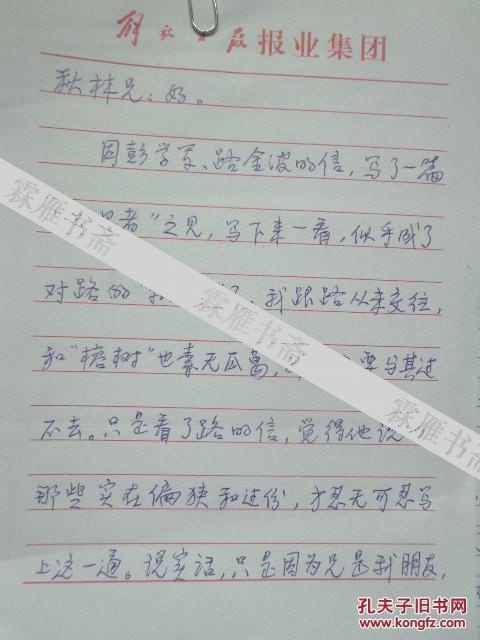 解放日报报业集团
秋林兄：好。
因彭学军、路金波的信，写了一篇
者"之见，写下来一看，似乎成了
对路的，我跟路从未交往，
和"榕树"也素无瓜葛，要与其过
不去。只是看了路的信，觉得他说
那些实在偏狭和过份，才忍无可忍写
上这一通。说实话，只是因为兄是我朋友，
霖雁书斋
霖雁书斋
霖雁书斋
孔夫子旧书网
www.kongfz.com